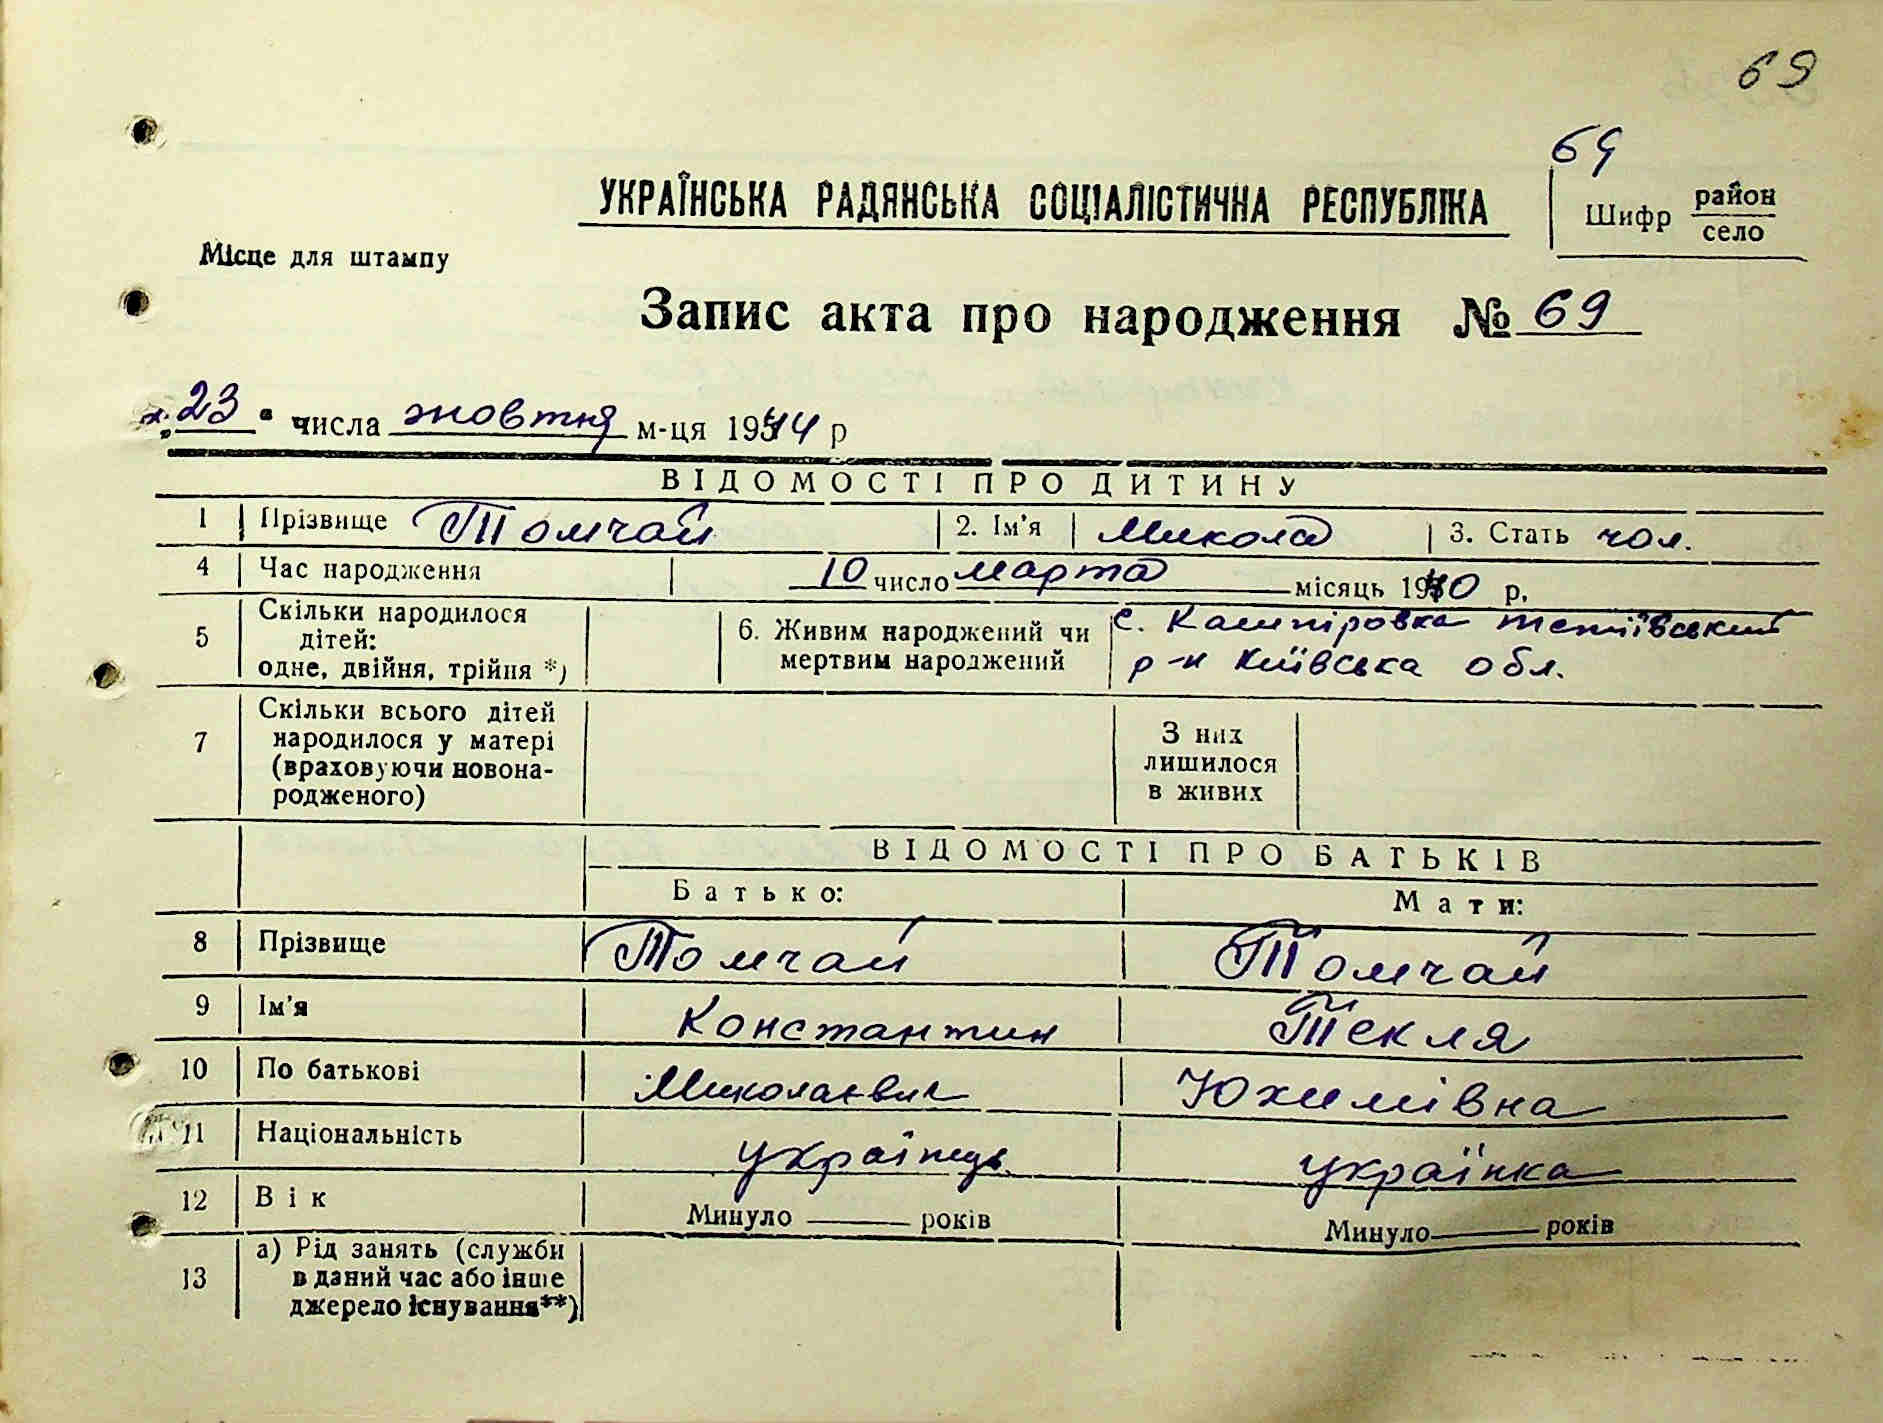 69
69
УКРАЇНСЬКА РАДЯНСЬКА СОЦІАЛІСТИЧНА РЕСПУБЛІКА
Шифр район
село
Місце для штампу
Запис акта про народження № 69
„23“ числа жовтня м-ця 1944 р
ВІДОМОСТІ ПРО ДИТИНУ
1 Прізвище Томчай 2. Ім'я Микола 3. Стать чол.
4 Час народження 10 число марта місяць 1940 р.
5 Скільки народилося дітей: одне, двійня, трійня *) 6. Живим народжений чи мертвим народжений с. Кашпіровка тетіївський
р-н Київська обл.
7 Скільки всього дітей народилося у матері (враховуючи новонародженого) З них лишилося в живих
ВІДОМОСТІ ПРО БАТЬКІВ
Батько: Мати:
8 Прізвище Томчай Томчай
9 Ім'я Константин Текля
10 По батькові Миколаєвич Юхимівна
11 Національність українець українка
12 Вік Минуло ——— років Минуло ——— років
13 а) Рід занять (служби
в даний час або інше
джерело існування**)